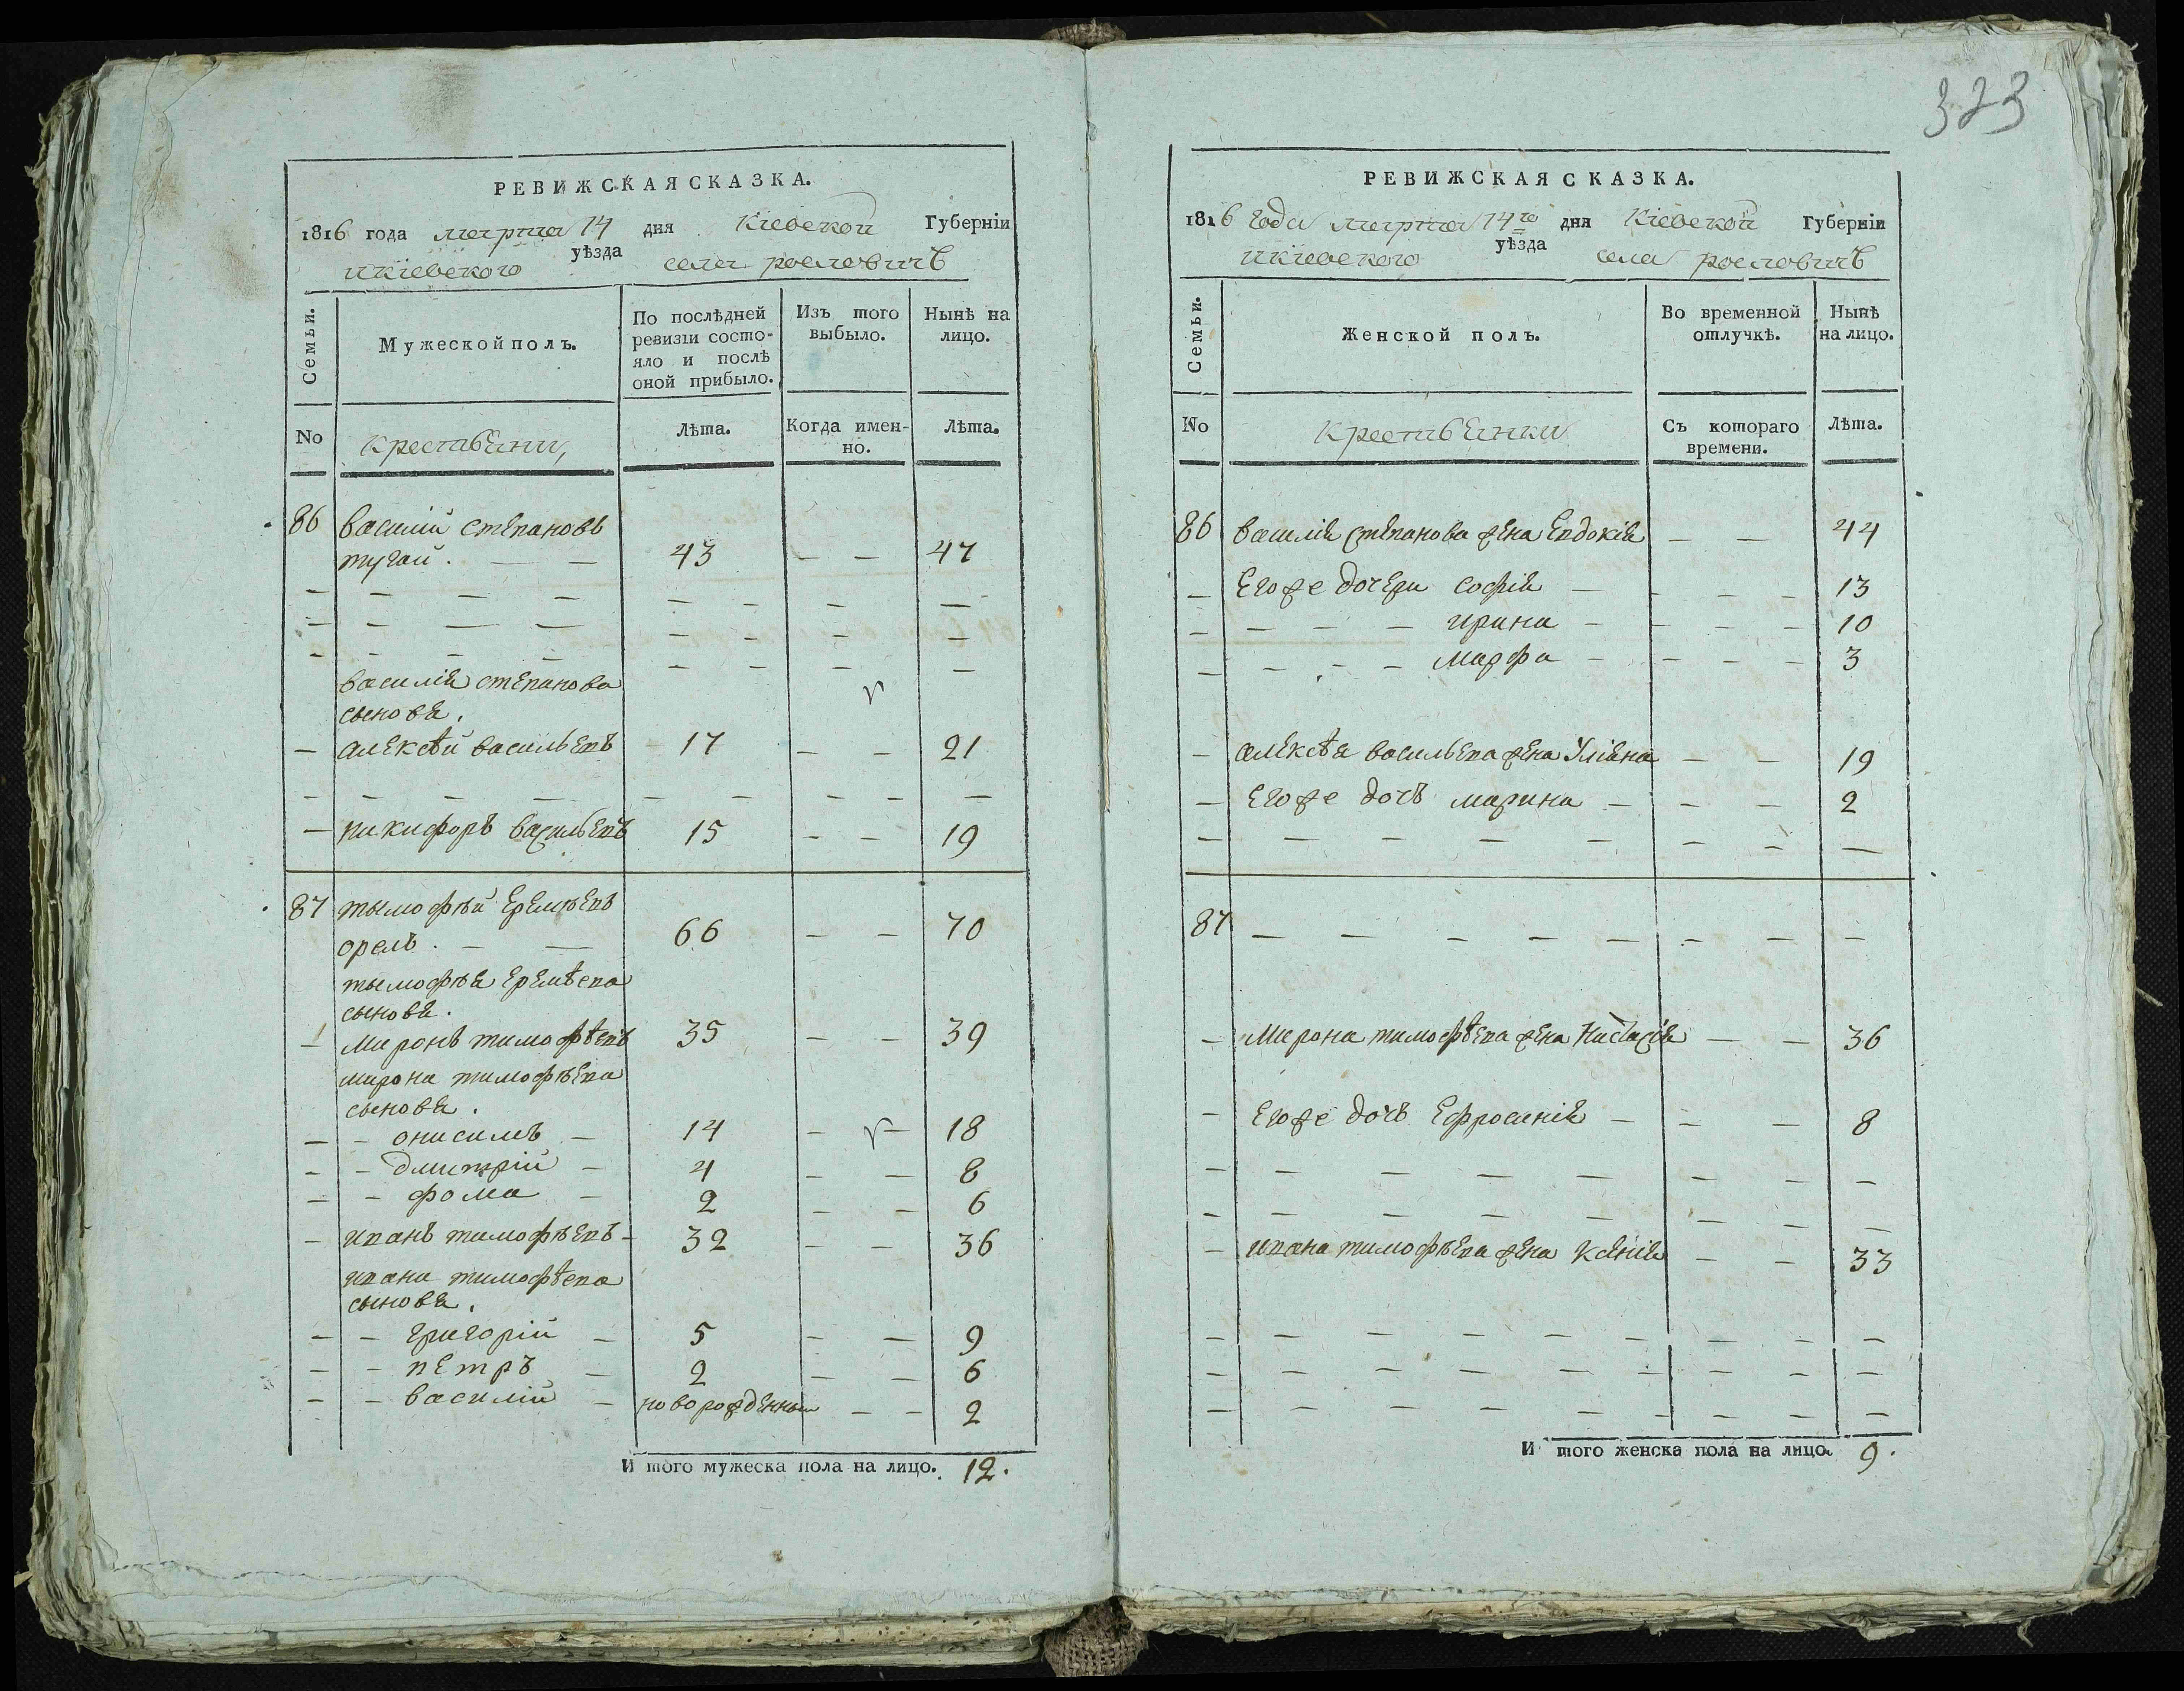 323
РЕВИЖСКАЯ СКАЗКА.
1816 года марта 14 дня Кіевской Губерніи
икіевского уѣзда села рословичъ
Семьи.
Мужеской полъ.
По послѣдней ревизіи состояло и послѣ оной прибыло.
Изъ того выбыло.
Нынѣ на лицо.
No
крестьѣяни,
Лѣта.
Когда именно.
Лѣта.
86 василій степановъ
тугай. — — 43 — — 47
василія степанова
сыновя.
— алексѣй васильевъ 17 — — 21
— никифоръ васильевъ 15 — — 19
87 тымофѣй еремѣевъ
орелъ. — — 66 — — 70
тымофѣя еремѣева
сыновя.
— миронъ тимофѣевъ 35 — — 39
мирона тимофѣева
сыновя.
— — онисимъ — 14 — — 18
— — дмитрій — 4 — — 8
— — фома — 2 — — 6
— иванъ тимофѣевъ — 32 — — 36
ивана тимофѣева
сыновя.
— — григорій — 5 — — 9
— — петръ — 2 — — 6
— — василій — новорожденный — — 2
И того мужеска пола на лицо. 12.
РЕВИЖСКАЯ СКАЗКА.
1816 года марта 14го дня Кіевской Губерніи
икіевского уѣзда села рословичъ
Семьи.
Женской полъ.
Во временной отлучкѣ.
Нынѣ на лицо.
No
крестьѣянки
Съ котораго времени.
Лѣта.
86 василія степанова жена Евдокія — — 44
— Его же дочери софія — — — — 13
— — — — ирина — — — — 10
— — — — марфа — — — — 3
— алексѣя васильева жена Уліяна — — 19
— Его же дочъ марина — — — 2
87 — — — — — — — —
— Мирона тимофѣева жена Настасія — — 36
— Его же дочъ Ефросинія — — — 8
— ивана тимофѣева жена Ксенія — — 33
И того женска пола на лицо. 9.